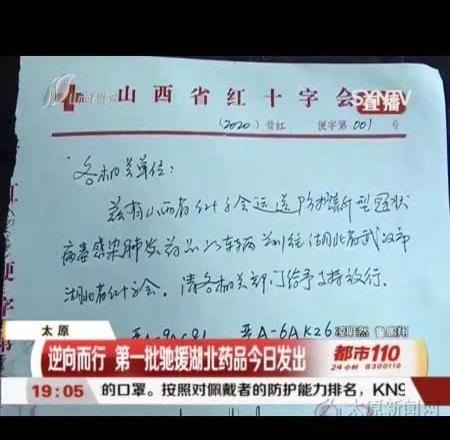 直播
山西省红十字会
(2020) 晋红 便字第001号
各相关单位：
兹有山西省红十字会运送防护新型冠状
病毒感染肺炎药品以车辆前往湖北省武汉市
湖北省红十字会。请各相关部门给予支持放行。
晋A-6AK26
太原
逆向而行 第一批驰援湖北药品今日发出
都市110
24小时 8300110
19:05
的口罩。按照对佩戴者的防护能力排名，KN9
太原新闻网